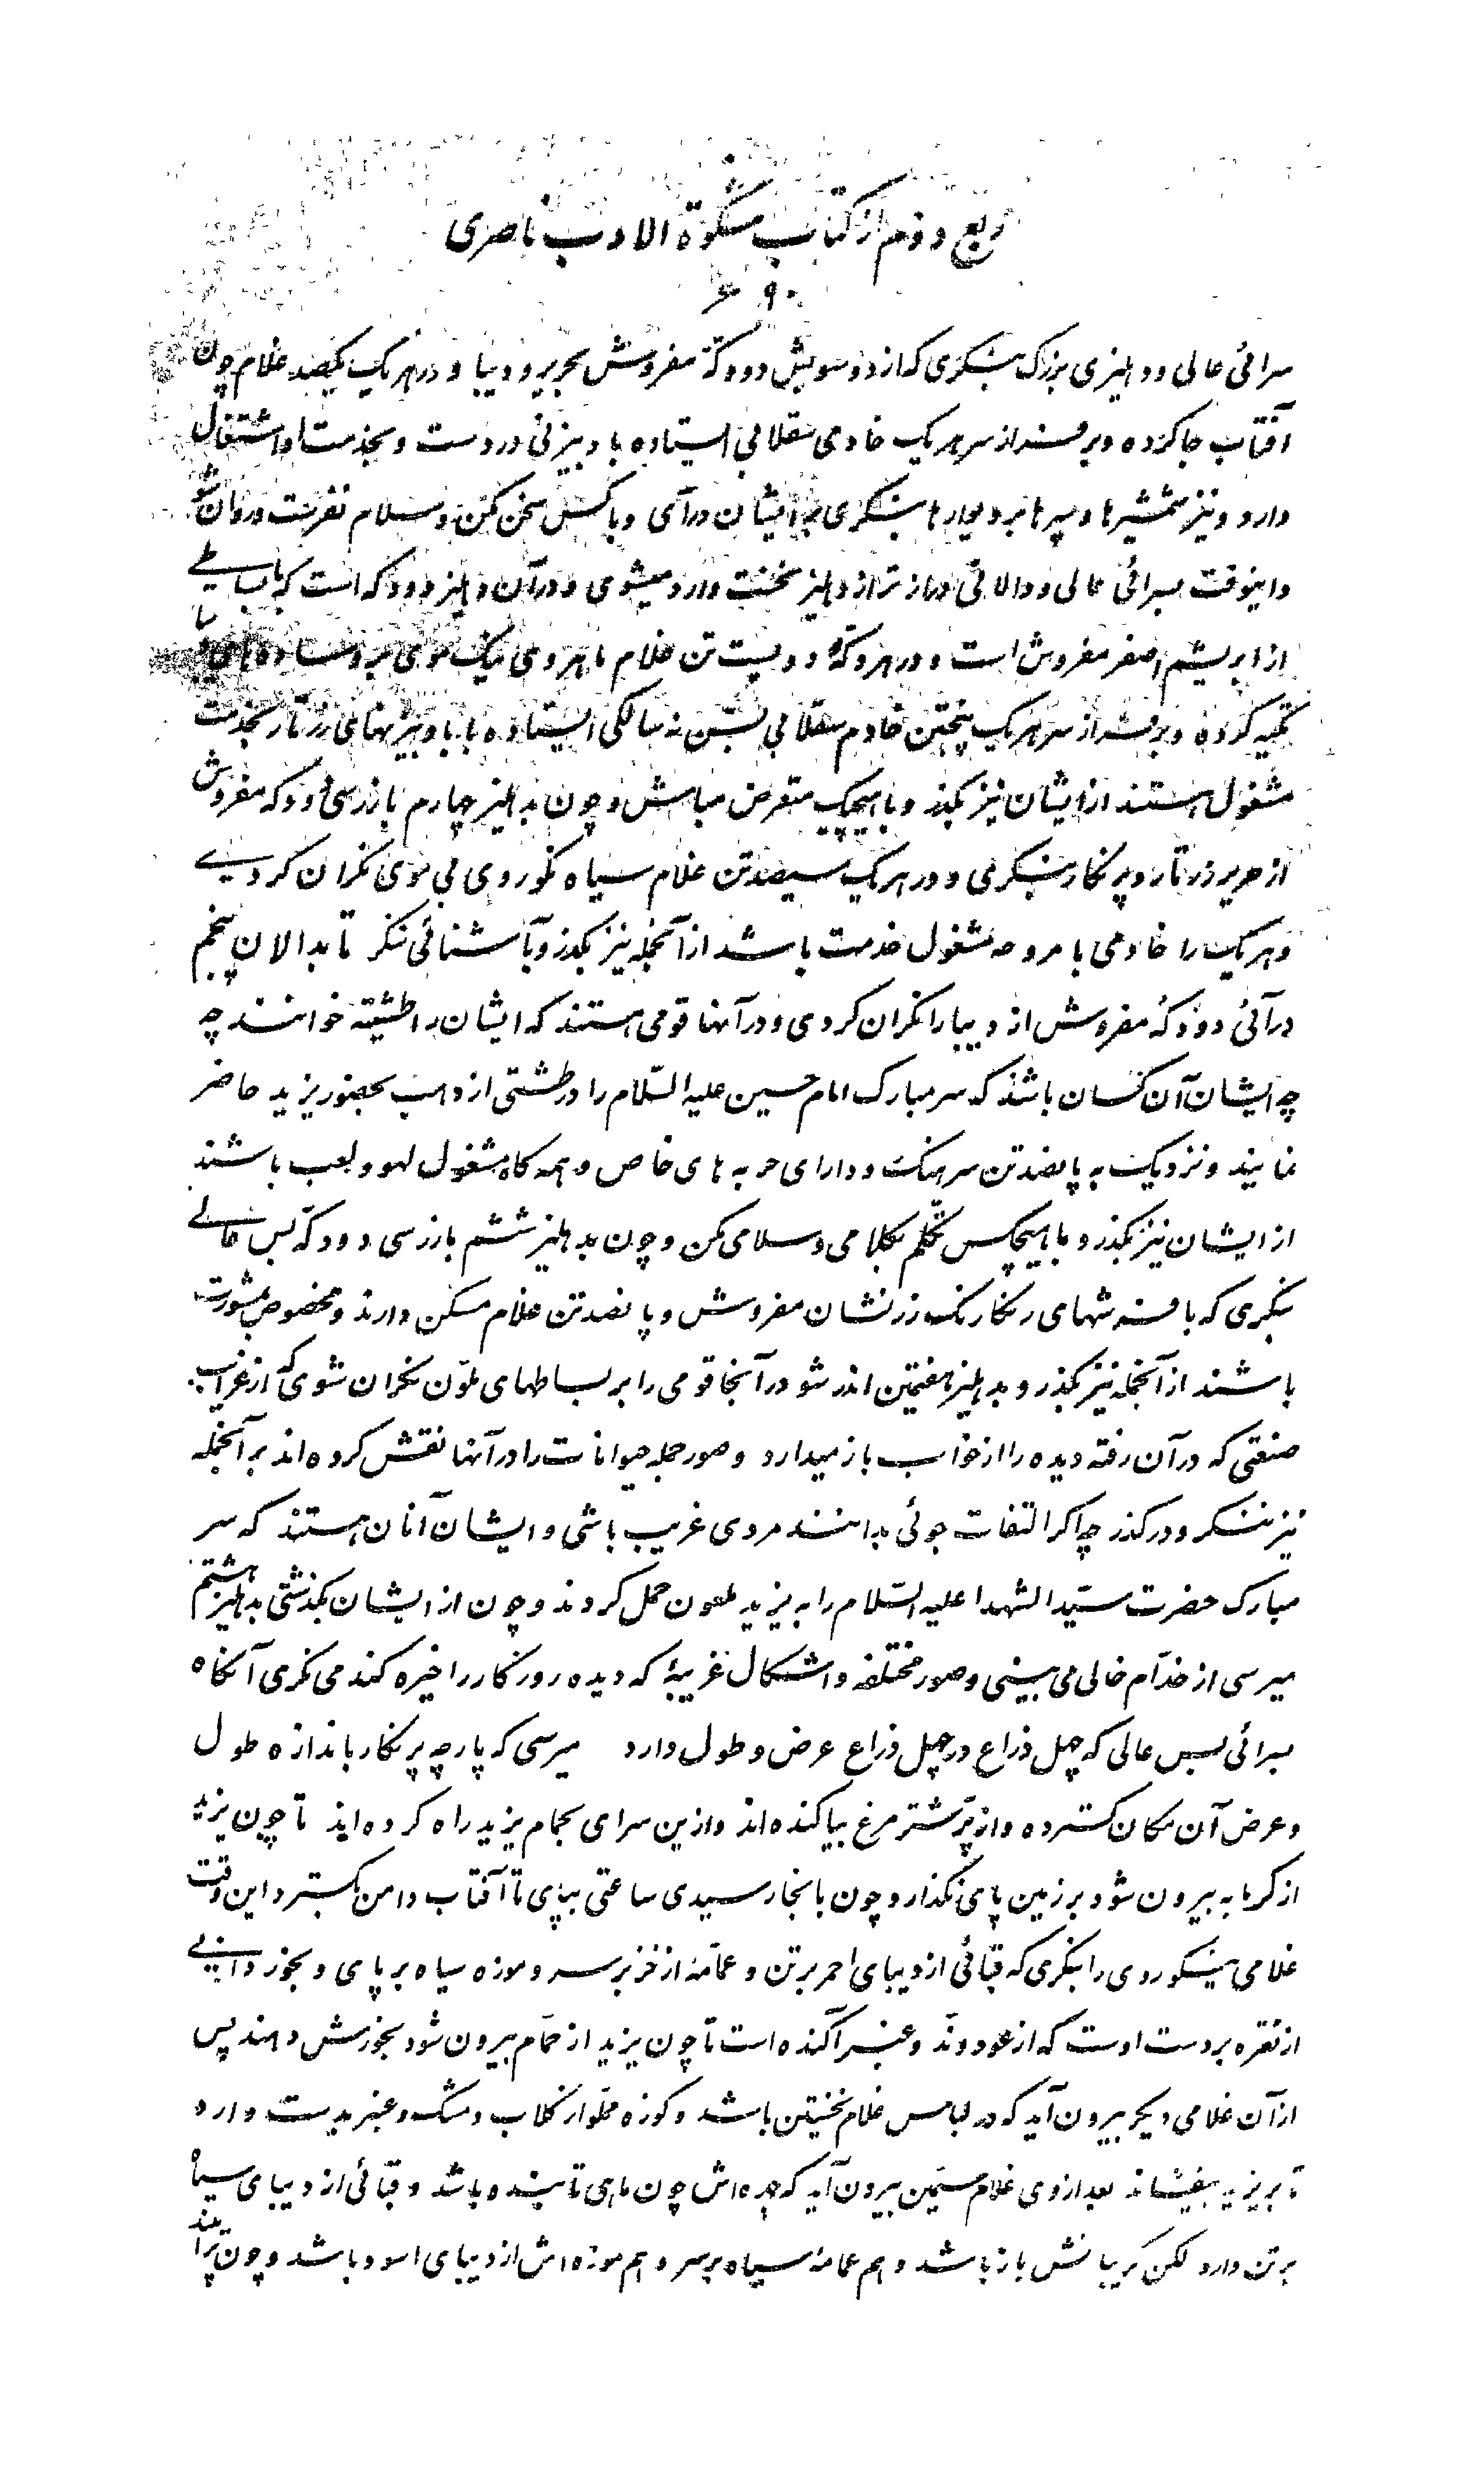 ربع دوم از کتاب مشکوة الادب ناصری
۶۹۰
سرائی عالی و دهلیزی بزرگ بنگری که از دو سویش دو دکّه مفروش بحریر و دیبا و در هریک یکصد غلام چون
آفتاب جا کرده و بر فراز سر هریک خادمی سقلابی ایستاده بادبیزنی در دست و بخدمت او اشتغال
دارد و نیز شمشیرها و سپرها بر دیوارها بنگری بر ایشان درآی و با کس سخن مکن و سلام نفرست و روان شو
و اینوقت بسرائی عالی و دالانی دراز تر از دهلیز نخست وارد میشوی و در آن دهلیز دو دکه است که با بساطی
از ابریشم اصفر مفروش است و در هر دکّهٔ دویست تن غلام ماهروی مشک موی بر وساده‌های دیبا
تکیه کرده و بر فراز سر هریک پنجتن خادم سقلابی بسّن نه سالگی ایستاده با بادبیزنهای زرتار بخدمت
مشغول هستند از ایشان نیز بگذر و با هیچیک متعرض مباش و چون بدهلیز چهارم باز رسی دو دکه مفروش
از حریر زرتار و پر نگار بنگری و در هریک سیصد تن غلام سیاه نکوروی بی موی نگران گردی
و هریک را خادمی با مروحه مشغول خدمت باشد از آنجمله نیز بگذر و بآشنائی منگر تا بدالان پنجم
درآئی دو دکهٔ مفروش از دیبا را نگران گردی و در آنها قومی هستند که ایشان را طشتیّه خوانند چه
چه ایشان آن کسان باشند که سر مبارک امام حسین علیه السّلام را در طشتی از ذهب بحضور یزید حاضر
نمایند و نزدیک به پانصد تن سرهنگ و دارای حربه های خاص و همه گاه مشغول لهو و لعب باشند
از ایشان نیز بگذر و با هیچکس تکلّم بکلامی و سلامی مکن و چون بدهلیز ششم باز رسی دو دکّه بس عالی
بنگری که با فرشهای رنگارنگ زرنشان مفروش و پانصد تن غلام مسکن دارند و مخصوص بمشورت
باشند از آنجمله نیز بگذر و بدهلیز هفتمین اندر شو در آنجا قومی را بر بساطهای ملوّن نگران شوی که از غرایب
صنعتی که در آن رفته دیده را از خواب باز میدارد و صور جمله حیوانات را در آنها نقش کرده‌اند بر آنجمله
نیز منگر و درگذر چه اگر التفات جوئی بدانند مردی غریب باشی و ایشان آنان هستند که سر
مبارک حضرت سیّد الشهدا علیه السّلام را به یزید ملعون حمل کردند و چون از ایشان بگذشتی بدهلیز هشتم
میرسی از خدّام خالی می بینی و صور مختلفه و اشکال غریبهٔ که دیده روزگار را خیره کند می نگری آنگاه
بسرائی بس عالی که چهل ذراع در چهل ذراع عرض و طول دارد میرسی که پارچه پر نگار باندازه طول
و عرض آن مکان گسترده و از پرّ شترمرغ بیاکنده‌اند و ازین سرای بحمام یزید راه کرده‌اند تا چون یزید
از گرمابه بیرون شود بر زمین پای نگذارد چون بآنجا رسیدی ساعتی بپای تا آفتاب دامن بگسترد این وقت
غلامی نیکو روی را بنگری که قبائی از دیبای احمر بر تن و عمّامهٔ از خز بر سر و موزه سیاه بر پای و بخوردانی
از نقره بر دست اوست که از عود و ندّ و عنبر آکنده است تا چون یزید از حمّام بیرون شود بخورش دهند پس
از آن غلامی دیگر بیرون آید که در لباس غلام نخستین باشد و کوزه مملوّ از گلاب و مشک و عنبر بدست دارد
تا بر یزید بیفشاند بعد از وی غلام سیّمین بیرون آید که چهره‌اش چون ماهی تابنده باشد و قبائی از دیبای سیاه
بر تن دارد لکن گریبانش باز باشد و هم عمامهٔ سیاه بر سر و هم موزه‌اش از دیبای اسود باشد و چون ترا بیند